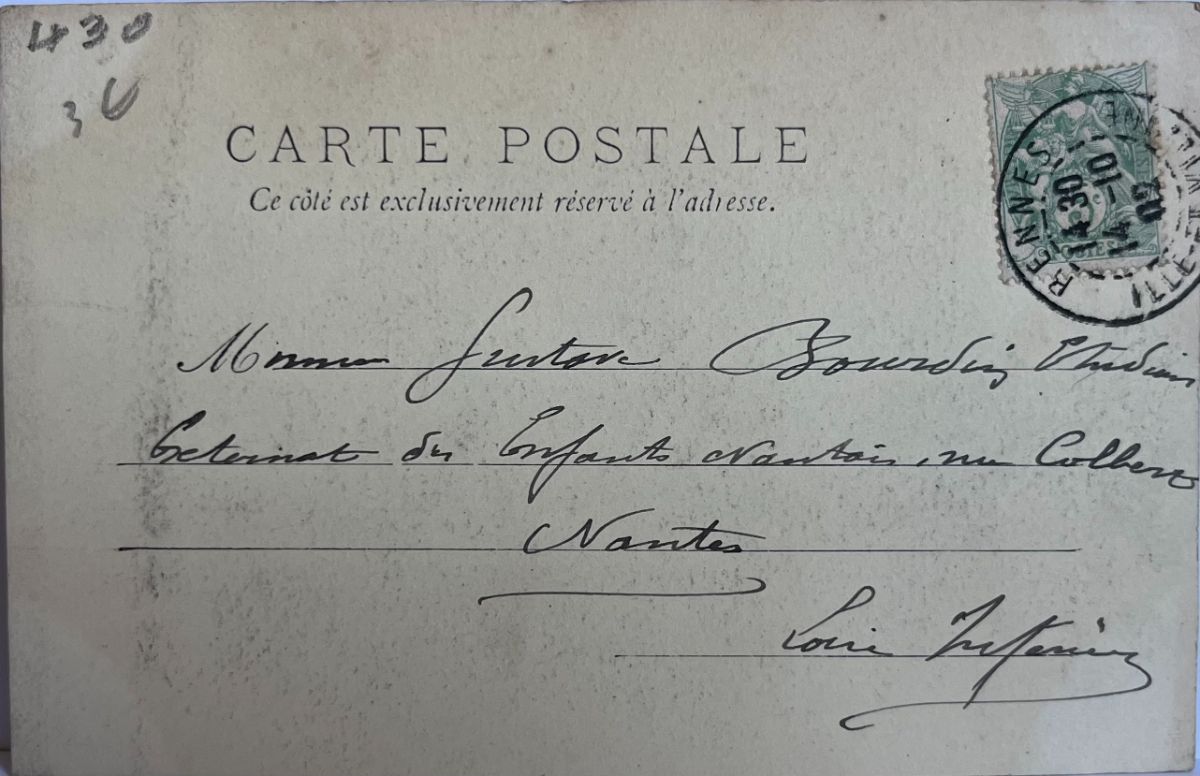 430
36
CARTE POSTALE
Ce côté est exclusivement réservé à l'adresse.
RENNES
14 30
14 -10
02
ILLE-ET-VILAINE
POSTES
Monsieur Gustave Bourdin Etudiant
Externat des Enfants Nantais, rue Colbert
Nantes
Loire Inférieure